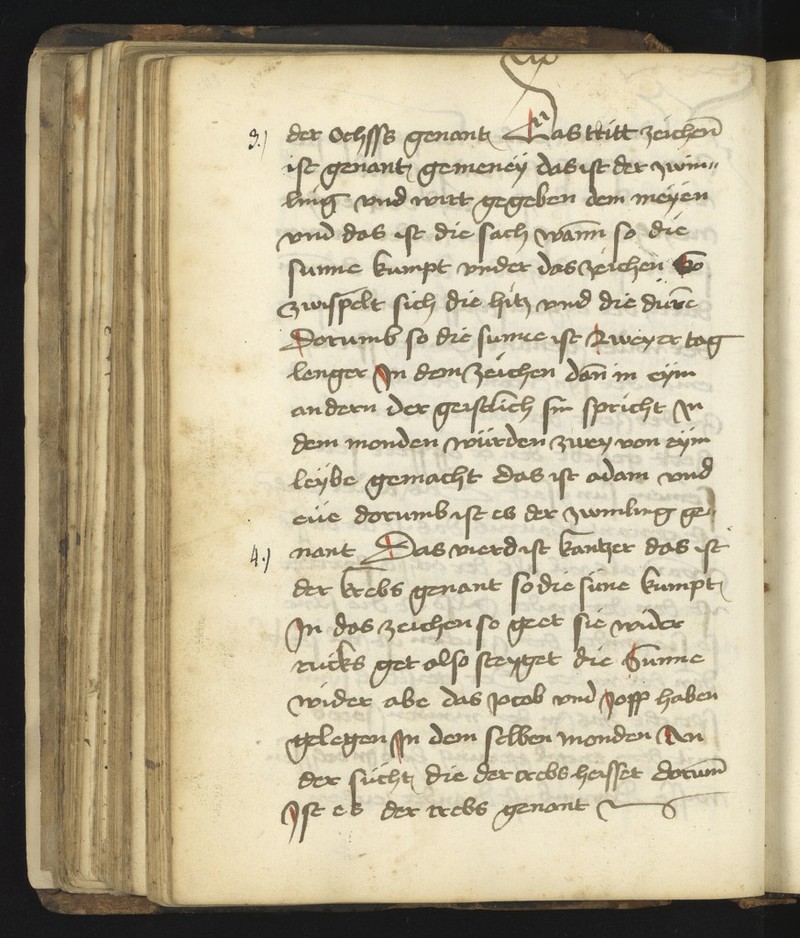 3.) der Ochsss genant Das tritt zeichen̄
ist genant gemeneÿ das ist der zwin=
ling vnd wirt gegeben dem meÿen
vnd das ist die sach wann̄ so die
sunne kumpt vnder das zeichen So
zwispelt sich die hitz vnd die dürre
Dorumb so die sunne ist zweyer tag
lenger In dem zeichen dan̄ in eÿm
andern der geistlich sin̄ spricht In
dem monden würden zweÿ von eÿm
leÿbe gemacht das ist adam vnd
eue dorumb ist es der zwinling ge=
4.) nant Das vierd ist kantzer das ist
der krebs genant so die sūne kumpt
In das zeichen so geet sie wider
rucks get also steyget die Sunne
wider abe das Jacob vnd Jopp haben
gelegen In dem selben monden An
der sücht die der crebs heisset dorum̄
Ist es der crebs genant